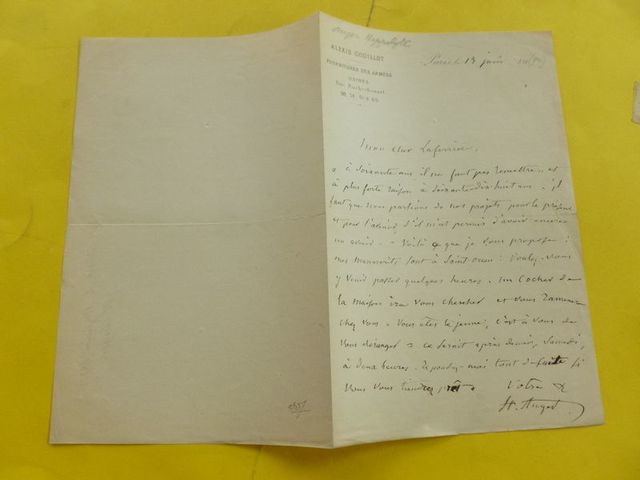 Auger Hippolyte
ALEXIS GODILLOT
FOURNISSEUR DES ARMÉES
USINES
Rue Rochechouart
Paris 13 juin
Mon cher Laferrière,
à soixante ans il ne faut pas remettre, et
à plus forte raison à soixante-dix-huit ans. il
faut que nous parlions de nos projets pour le présent
et pour l'avenir, s'il m'est permis d'avoir encore
un avenir. Voilà ce que je vous propose :
mes manuscrits sont à Saint-Ouen : Voulez-vous
y venir passer quelques heures. un Cocher de
la maison ira vous chercher et vous ramener
chez vous. Vous êtes le jeune ; c'est à vous de
vous déranger. ce serait après demain, samedi,
à deux heures. Répondez-moi tout de suite si
vous vous tiendrez prêt. Votre
H. Auger